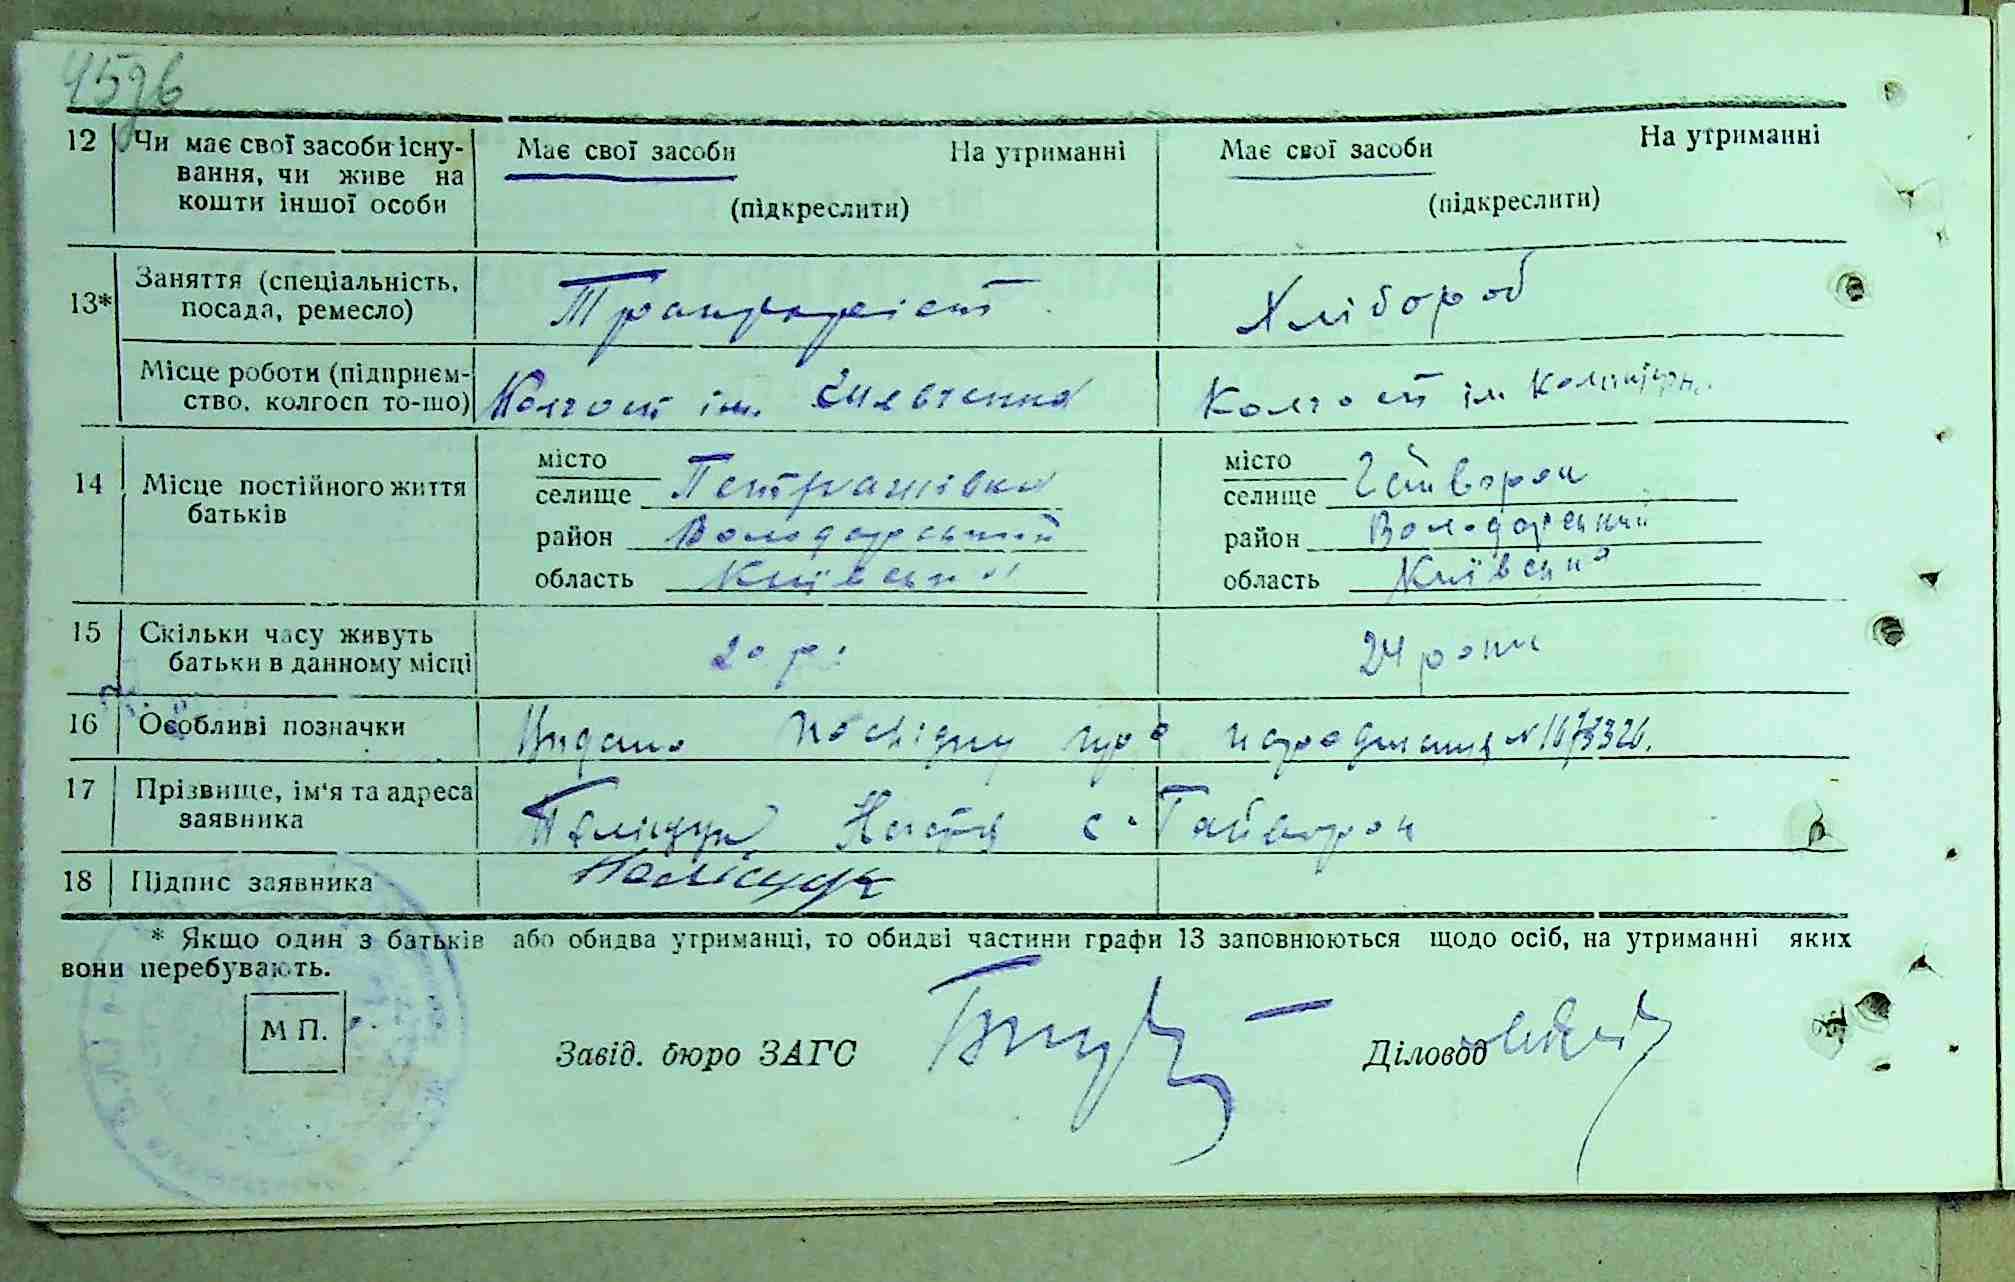 12 Чи має свої засоби існу- Має свої засоби На утриманні Має свої засоби На утриманні
вання, чи живе на
кошти іншої особи (підкреслити) (підкреслити)
13* Заняття (спеціальність, Хлібороб
посада, ремесло)
Місце роботи (підприєм- Колгосп ім. Шевченка Колгосп ім.
ство, колгосп то-що)
14 Місце постійного життя
батьків
місто місто
селище Петрашівка селище Гайворон
район Володарський район Володарський
область Київська область Київська
15 Скільки часу живуть 20 р. 24 роки
батьки в данному місці
16 Особливі позначки Видано посвідку про народження №
17 Прізвище, ім'я та адреса Поліщук Настя с. Гайворон
заявника
18 Підпис заявника Поліщук
* Якщо один з батьків або обидва утриманці, то обидві частини графи 13 заповнюються щодо осіб, на утриманні яких
вони перебувають.
М П.
Завід. бюро ЗАГС Діловод